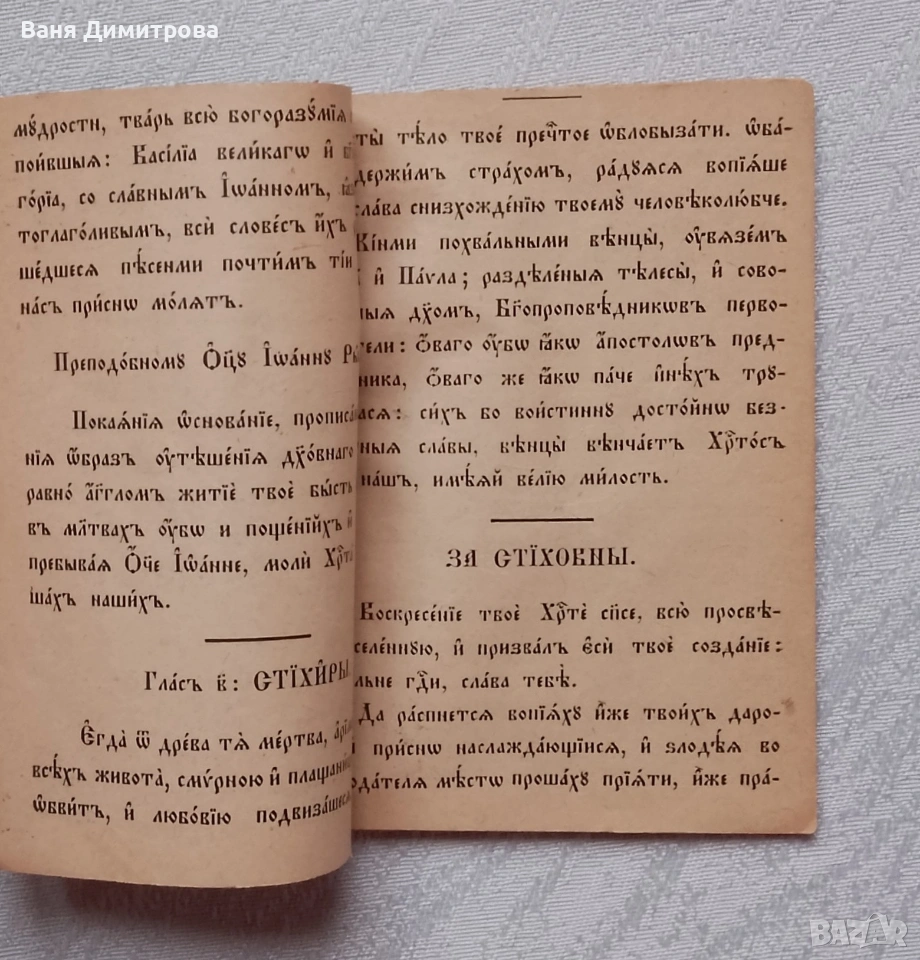 Ваня Димитрова
мꙋ́дрости, тва́рь всю̀ богоразꙋ́мїѧ
пои́вшыѧ: Васі́лїа вели́кагѡ и҆
го́рїа, со сла́внымъ І҆ѡа́нномъ,
тоглаго́ливымъ, всѝ слове́съ и҆́хъ
ше́дшесѧ пѣ́сенми почти́мъ
на́съ при́снѡ мо́лѧтъ.
Преподо́бномꙋ Ѻ҆ц҃ꙋ̀ І҆ѡа́ннꙋ
Покаѧ́нїѧ ѡ҆снова́нїе,
нїѧ ѡ҆́бразъ ᲂу҆тѣше́нїѧ дх҃о́внагѡ
равно̀ а҆́гг҃лѡмъ житїѐ твоѐ бы́сть
въ мл҃твахъ ᲂу҆́бѡ и поще́нїйхъ
пребыва́ѧ Ѻ҆́ч҃е І҆ѡа́нне, молѝ
ша́хъ на́шихъ.
Гла́съ в҃: СТЇХИ̑РЫ
Є҆гда̀ ѿ дре́ва тѧ̀ ме́ртва,
всѣ́хъ живота̀, смѵ́рною и҆
ѡ҆бви́тъ, и҆ любо́вїю подвиза́шесѧ
ты̀ тѣ́ло твоѐ пречⷭ҇тое ѡ҆блобыза́ти. ѡ҆ба́-
держи́мъ стра́хомъ, ра́дꙋѧсѧ вопїѧ́ше
сла́ва снизхожде́нїю твоемꙋ̀ человѣколю́бче.
Кі́ими похва́льными вѣнцы̀, ᲂу҆вѧзе́мъ
и҆ Па́ѵла; раздѣле́ныѧ тѣлесы̀, и҆ сово-
ныѧ дх҃омъ, Бг҃опроповѣ́дникѡвъ перво-
тели: ѻ҆́ваго ᲂу҆́бѡ ꙗ҆́кѡ а҆по́столѡвъ пред-
ника, ѻ҆́ваго же ꙗ҆́кѡ па́че и҆нѣ́хъ трꙋ-
асѧ: си́хъ бо вои́стиннꙋ досто́йнѡ без-
ныѧ сла́вы, вѣнцы̀ вѣнча́етъ Хрⷭ҇то́съ
на́шъ, и҆мѣ́ѧй ве́лїю ми́лость.
ЗА СТЇХОВНЫ.
Воскресе́нїе твоѐ Хрⷭ҇тѐ сп҃се, всю̀ просвѣ-
селе́ннꙋю, и҆ призва́лъ є҆сѝ твоѐ созда́нїе:
льне гдⷭ҇и, сла́ва тебѣ̀.
Да ра́спнетсѧ вопїѧ́хꙋ и҆̀же твои́хъ даро-
при́снѡ наслажда́ющїисѧ, и҆ злодѣ́ѧ во
ода́телѧ мѣ́стѡ проша́хꙋ прїѧ́ти, и҆̀же пра́-
BAZAR